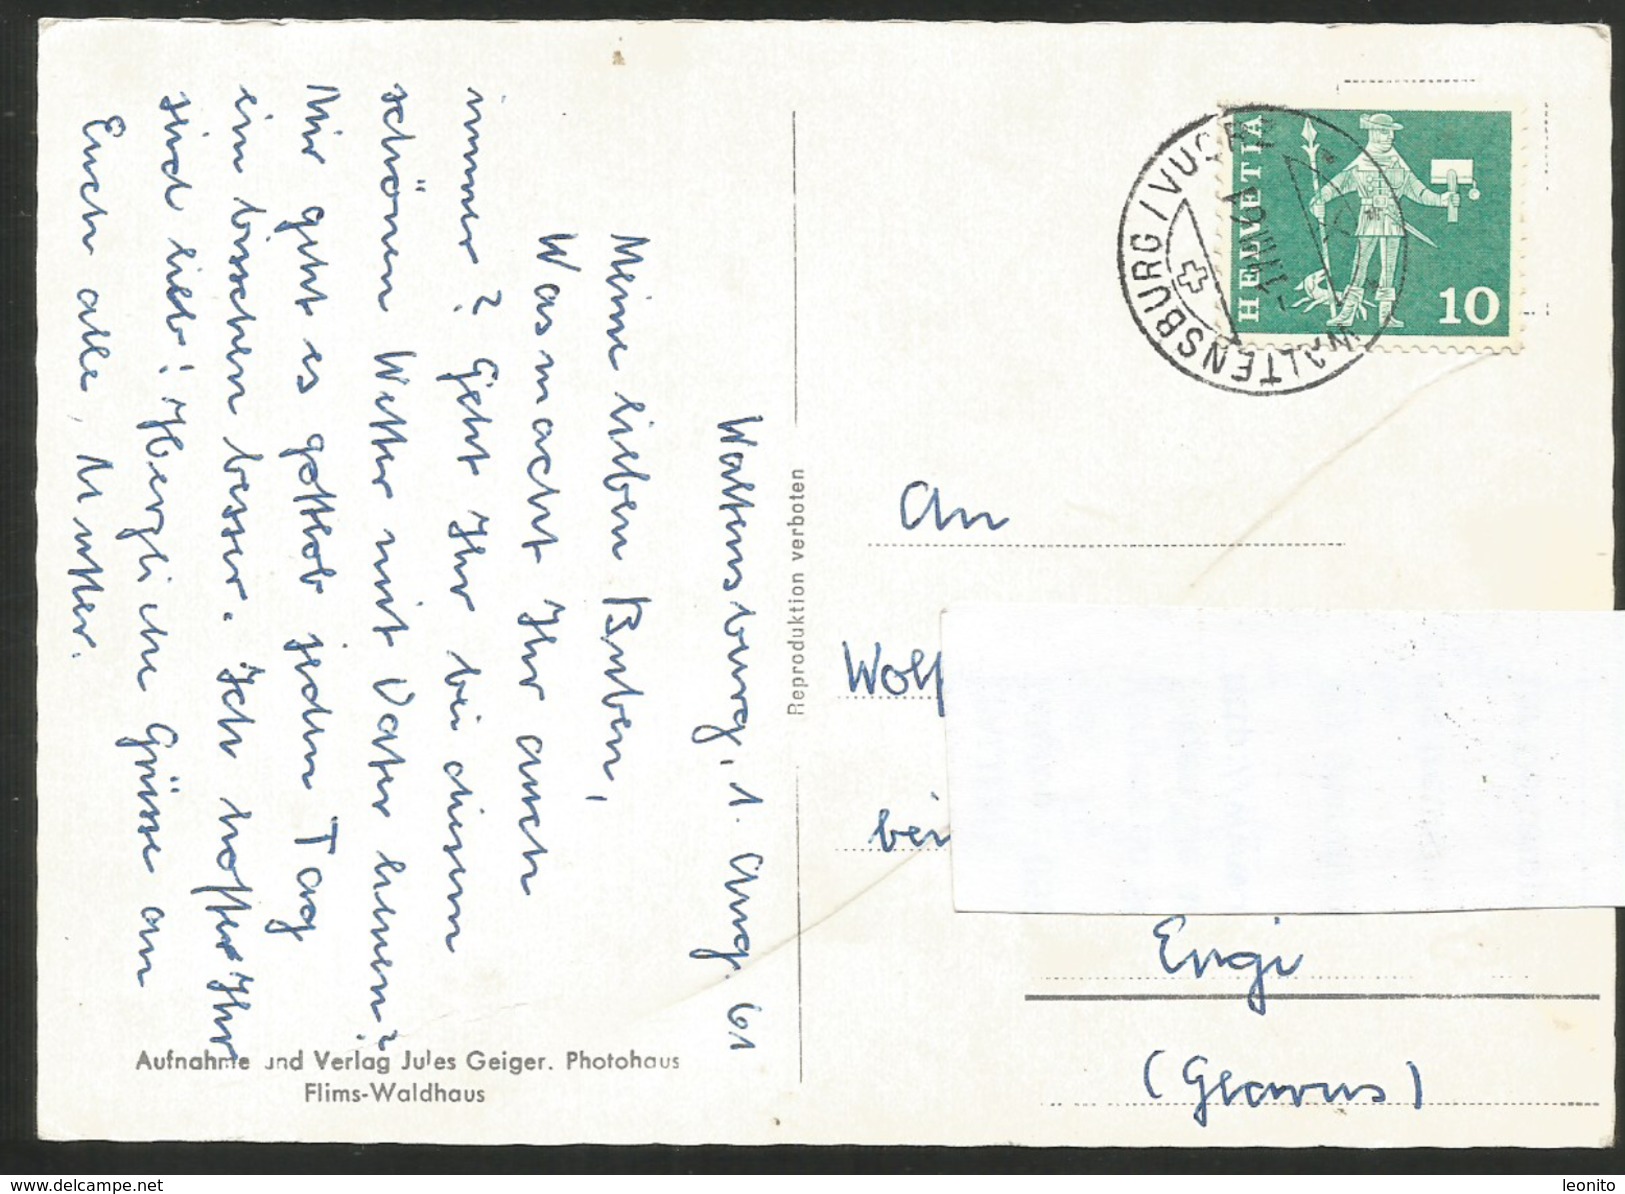 Waltensburg, 1. Aug. 61
Meine lieben Buben,
Was macht Ihr auch
immer? Geht Ihr bei diesem
schönen Wetter mit Vater
Mir geht es gottlob jeden Tag
ein bisschen besser. Ich hoffe Ihr
sind lieb! Herzliche Grüsse an
Euch alle, Mutter.
Aufnahme und Verlag Jules Geiger. Photohaus
Flims-Waldhaus
Reproduktion verboten
HELVETIA
10
WALTENSBURG/VUORZ
An
Wolf
bei
Engi
(Glarus)
www.delcampe.net
leonito